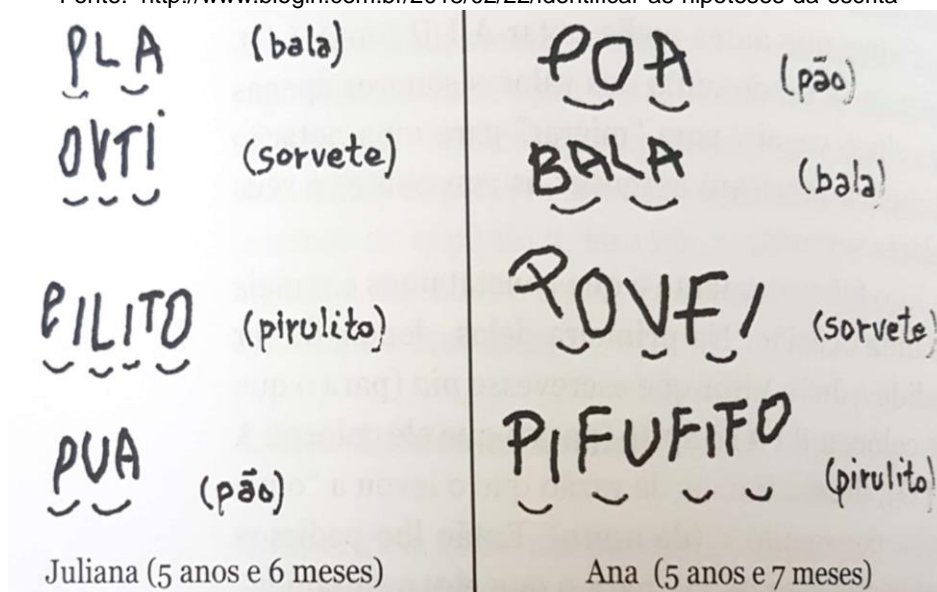 Fonte:
PLA (bala)
OVTI (sorvete)
PILITO (pirulito)
PUA (pão)
Juliana (5 anos e 6 meses)
POA (pão)
BALA (bala)
POVEI (sorvete)
PIFUFITO (pirulito)
Ana (5 anos e 7 meses)